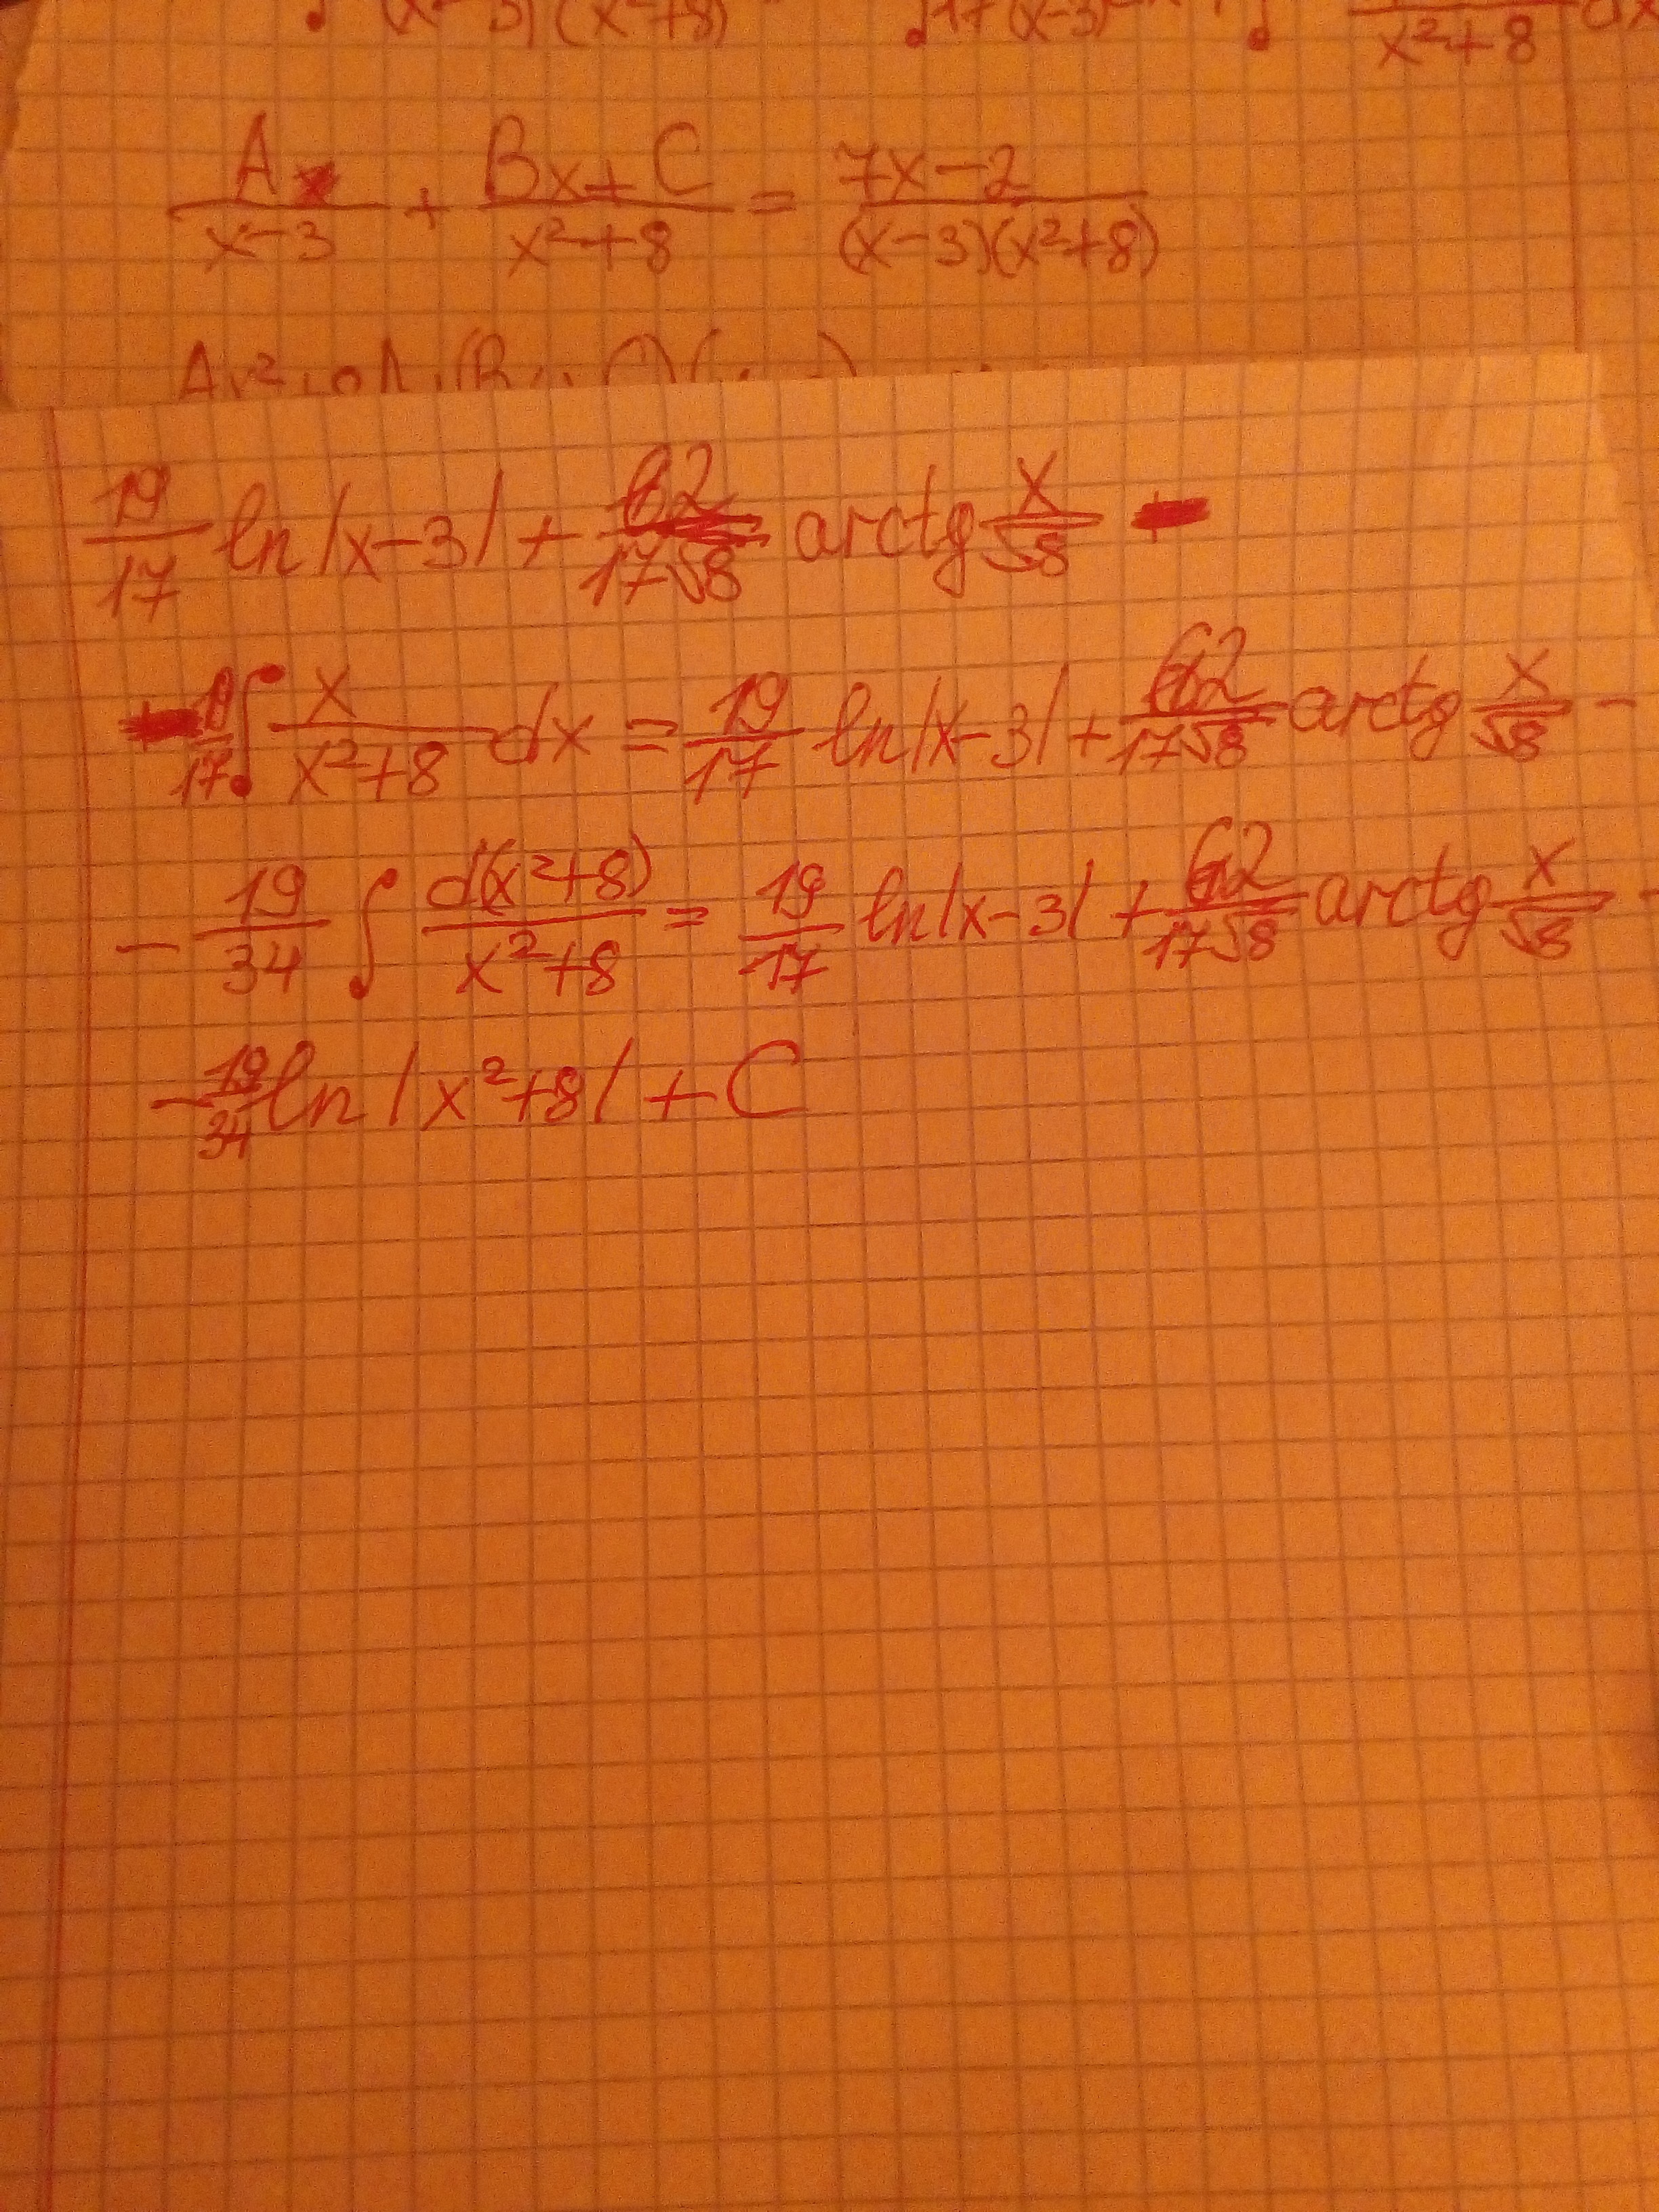 (x-3)(x²+8) 17(x-3) x²+8 dx
A/(x-3) + (Bx+C)/(x²+8) = (7x-2)/((x-3)(x²+8))
19/17 ln|x-3| + 62/(17√8) arctg x/√8
∫ x/(x²+8) dx = 19/17 ln|x-3| + 62/(17√8) arctg x/√8 -
- 19/34 ∫ d(x²+8)/(x²+8) = 19/17 ln|x-3| + 62/(17√8) arctg x/√8 -
- 19/34 ln|x²+8| + C